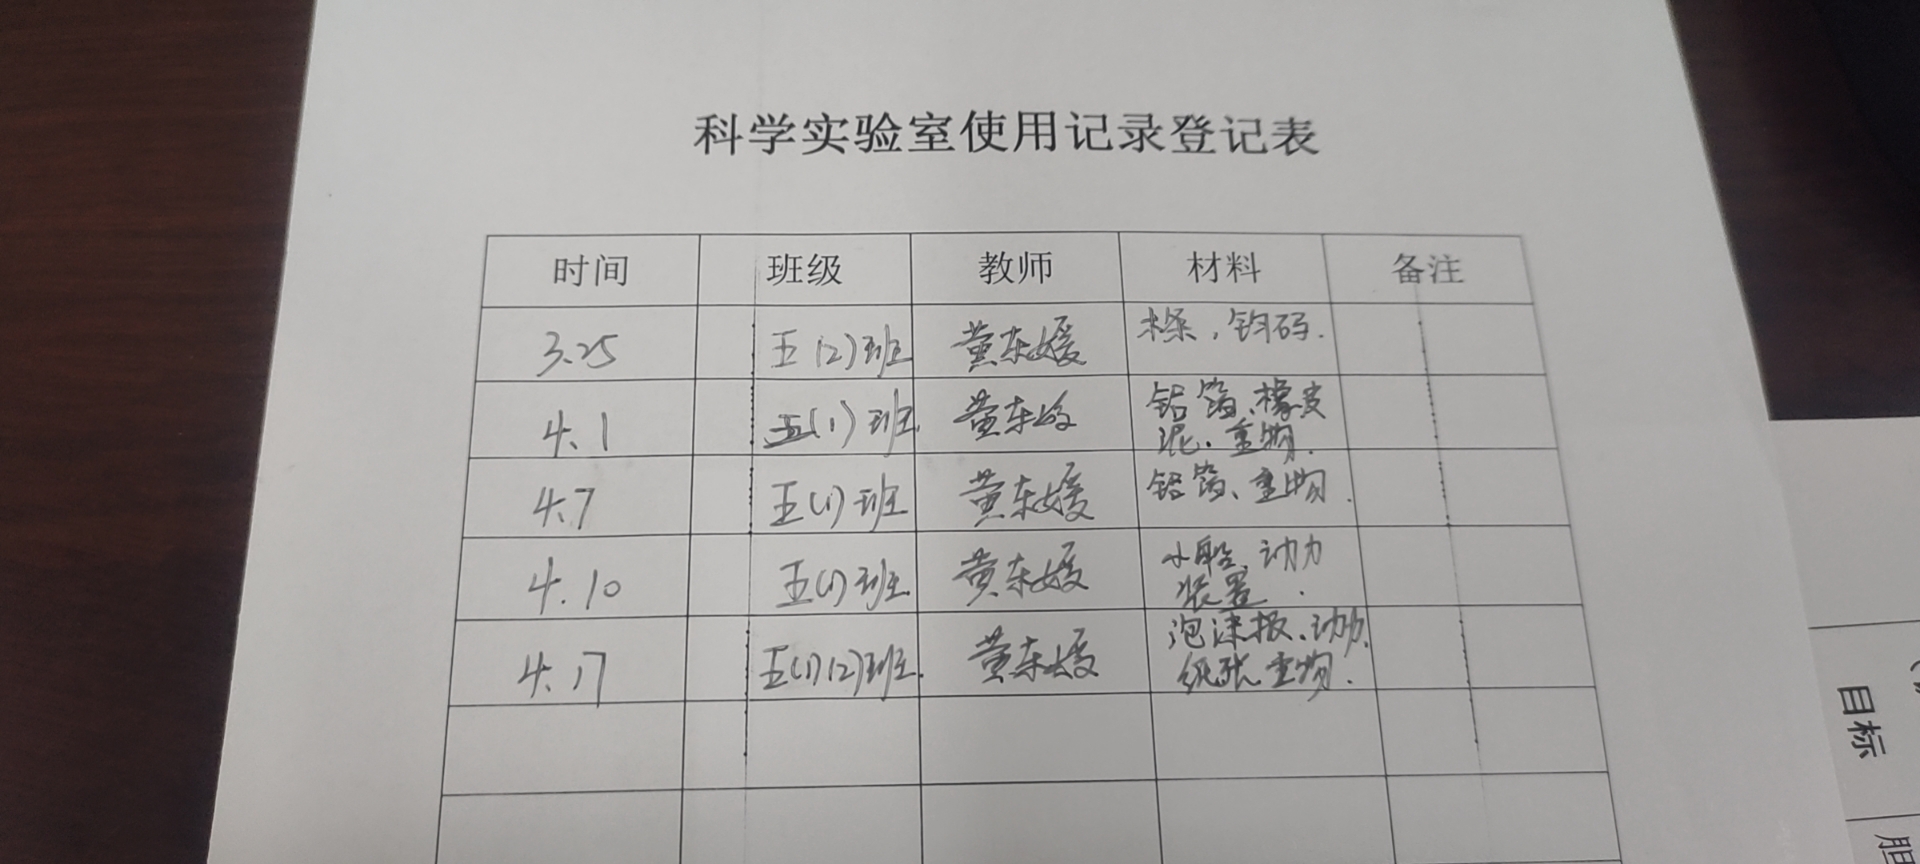 科学实验室使用记录登记表
时间 班级 教师 材料 备注
3.25 五(2)班 黄东媛 木条，钩码.
4.1 五(1)班 黄东媛 铝箔、橡皮
泥、重物.
4.7 五(1)班 黄东媛 铝箔、重物.
4.10 五(1)班 黄东媛 小船、动力
装置.
4.17 五(1)(2)班. 黄东媛 泡沫板、动力、
纸张、重物.
目标